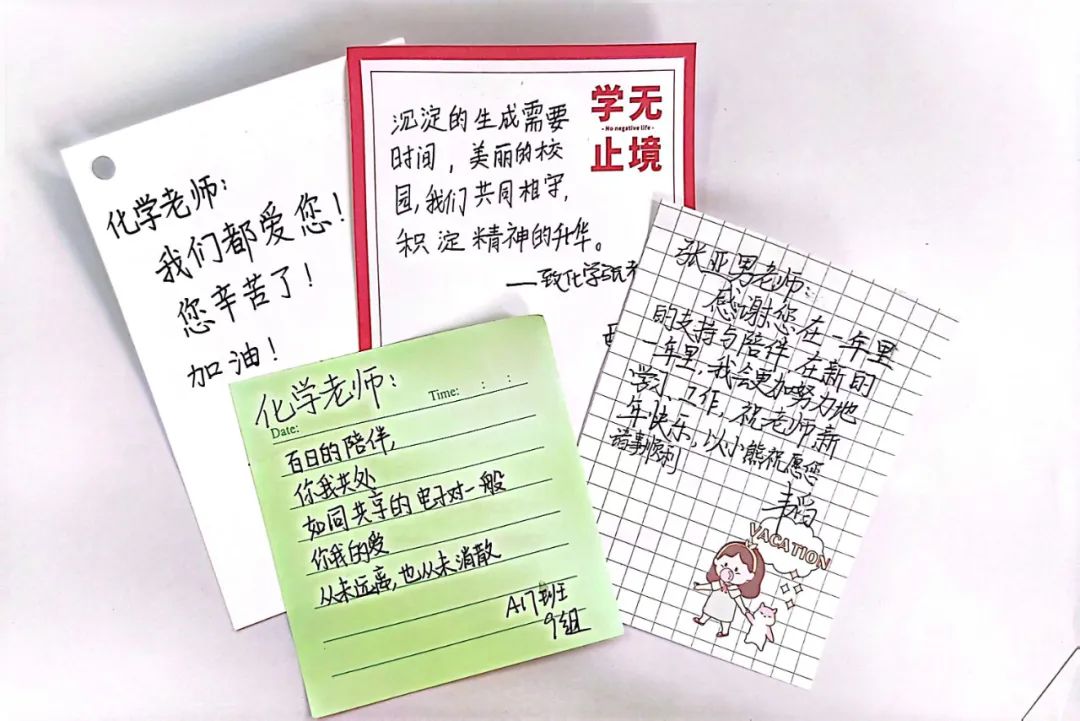 化学老师：
我们都爱您！
您辛苦了！
加油！
学无
- No negative life -
止境
沉淀的生成需要
时间，美丽的校
园，我们共同相守，
积淀精神的升华。
——致化学
化学老师：
Time: : :
Date:
百日的陪伴，
你我共处
如同共享的电子对一般
你我的爱
从未远离，也从未消散
A17班
9组
张亚男老师：
感谢您在一年里
的支持与陪伴在新的
一年里，我会更加努力地
学习工作，祝老师新
年快乐，以小熊祝愿您
诸事顺利
VACATION